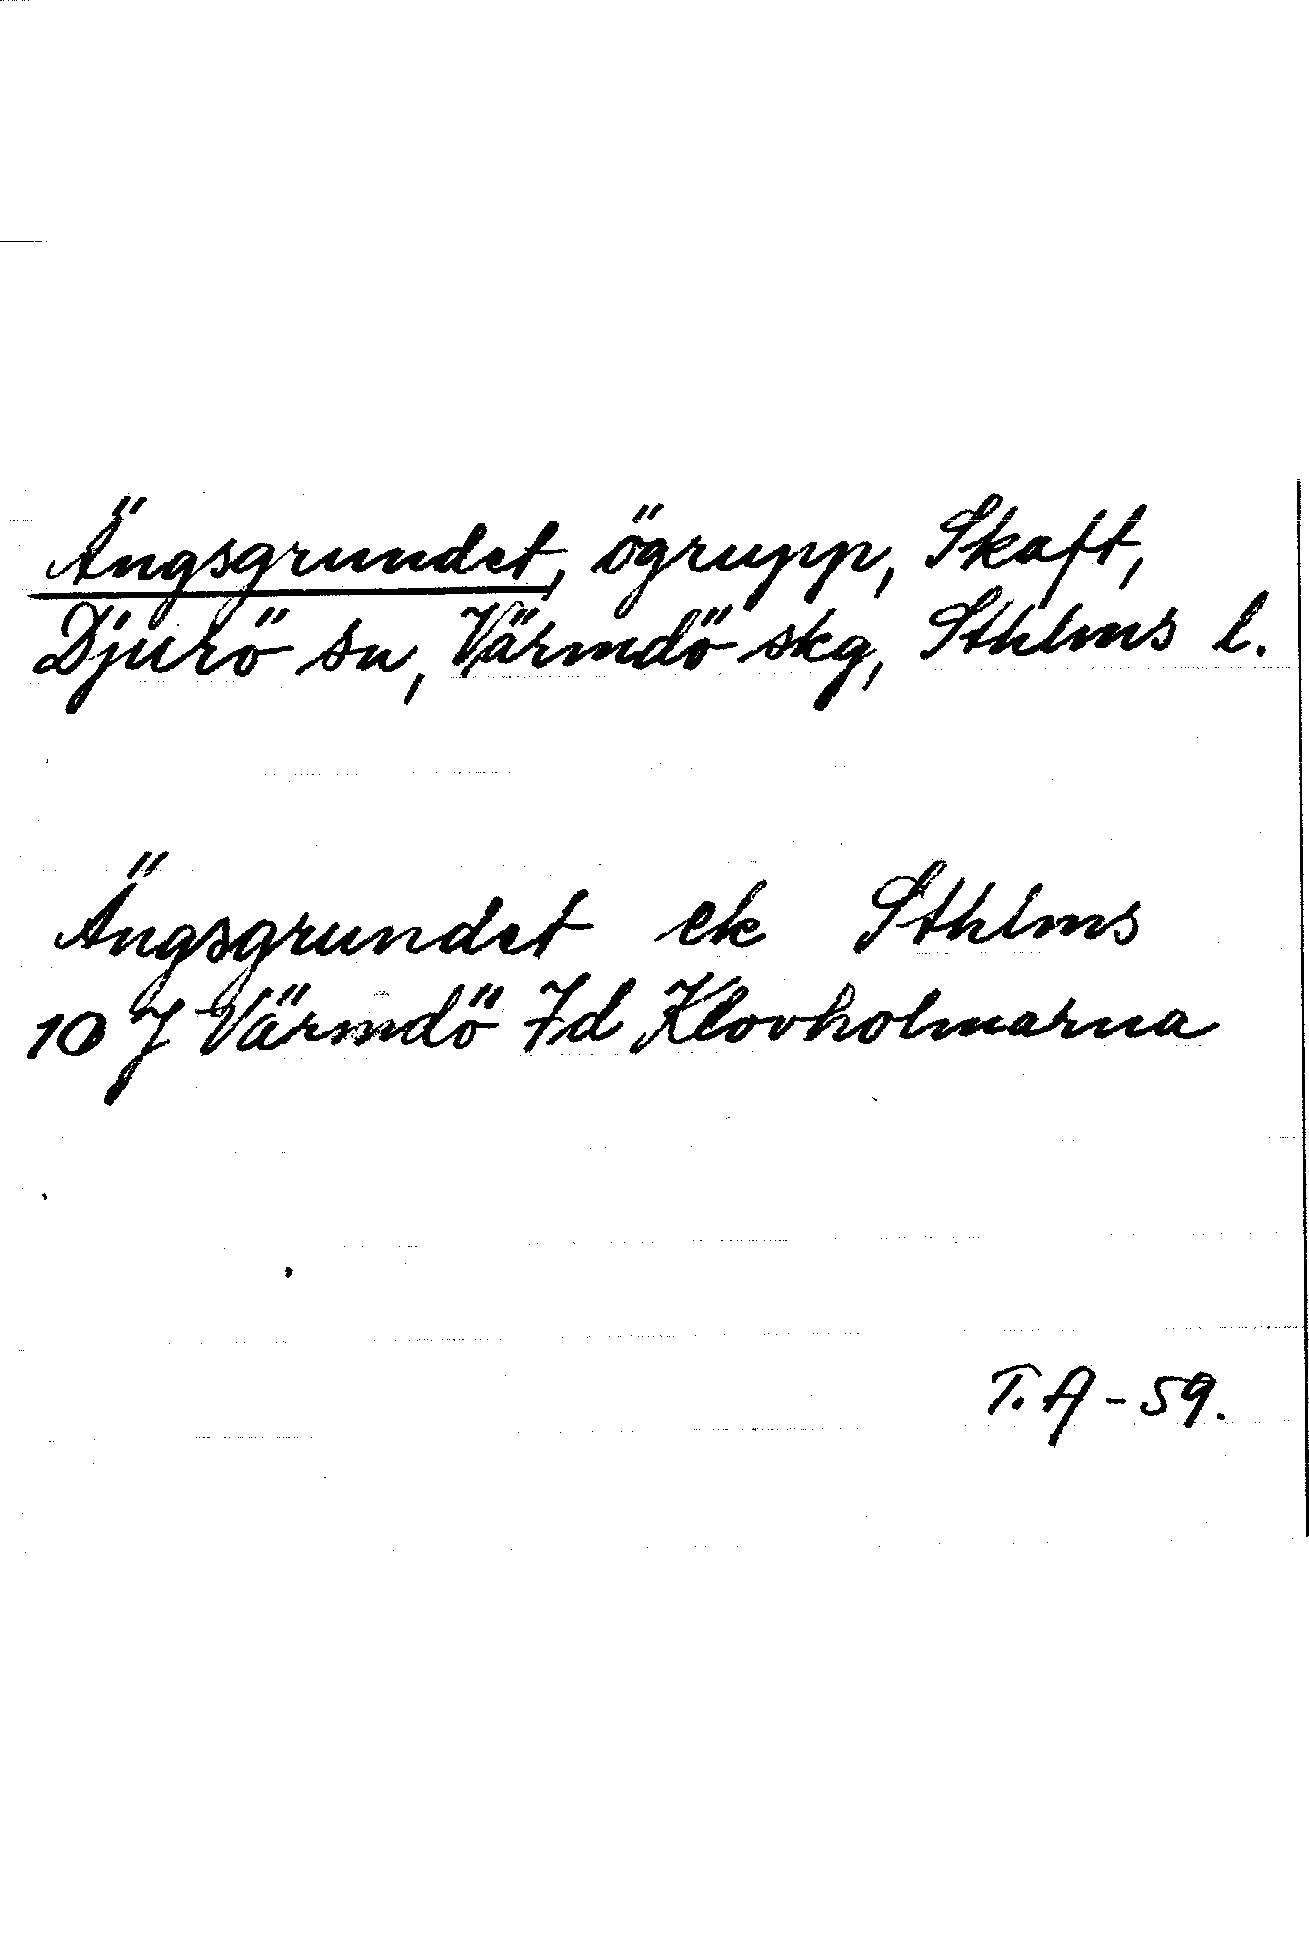 Ängsgrundet, ögrupp, Skaft,
Djurö sn, Värmdö skg, Sthlms l.
Ängsgrundet ek Sthlms
10 J Värmdö 7d Klovholmarna
T. A - 59.